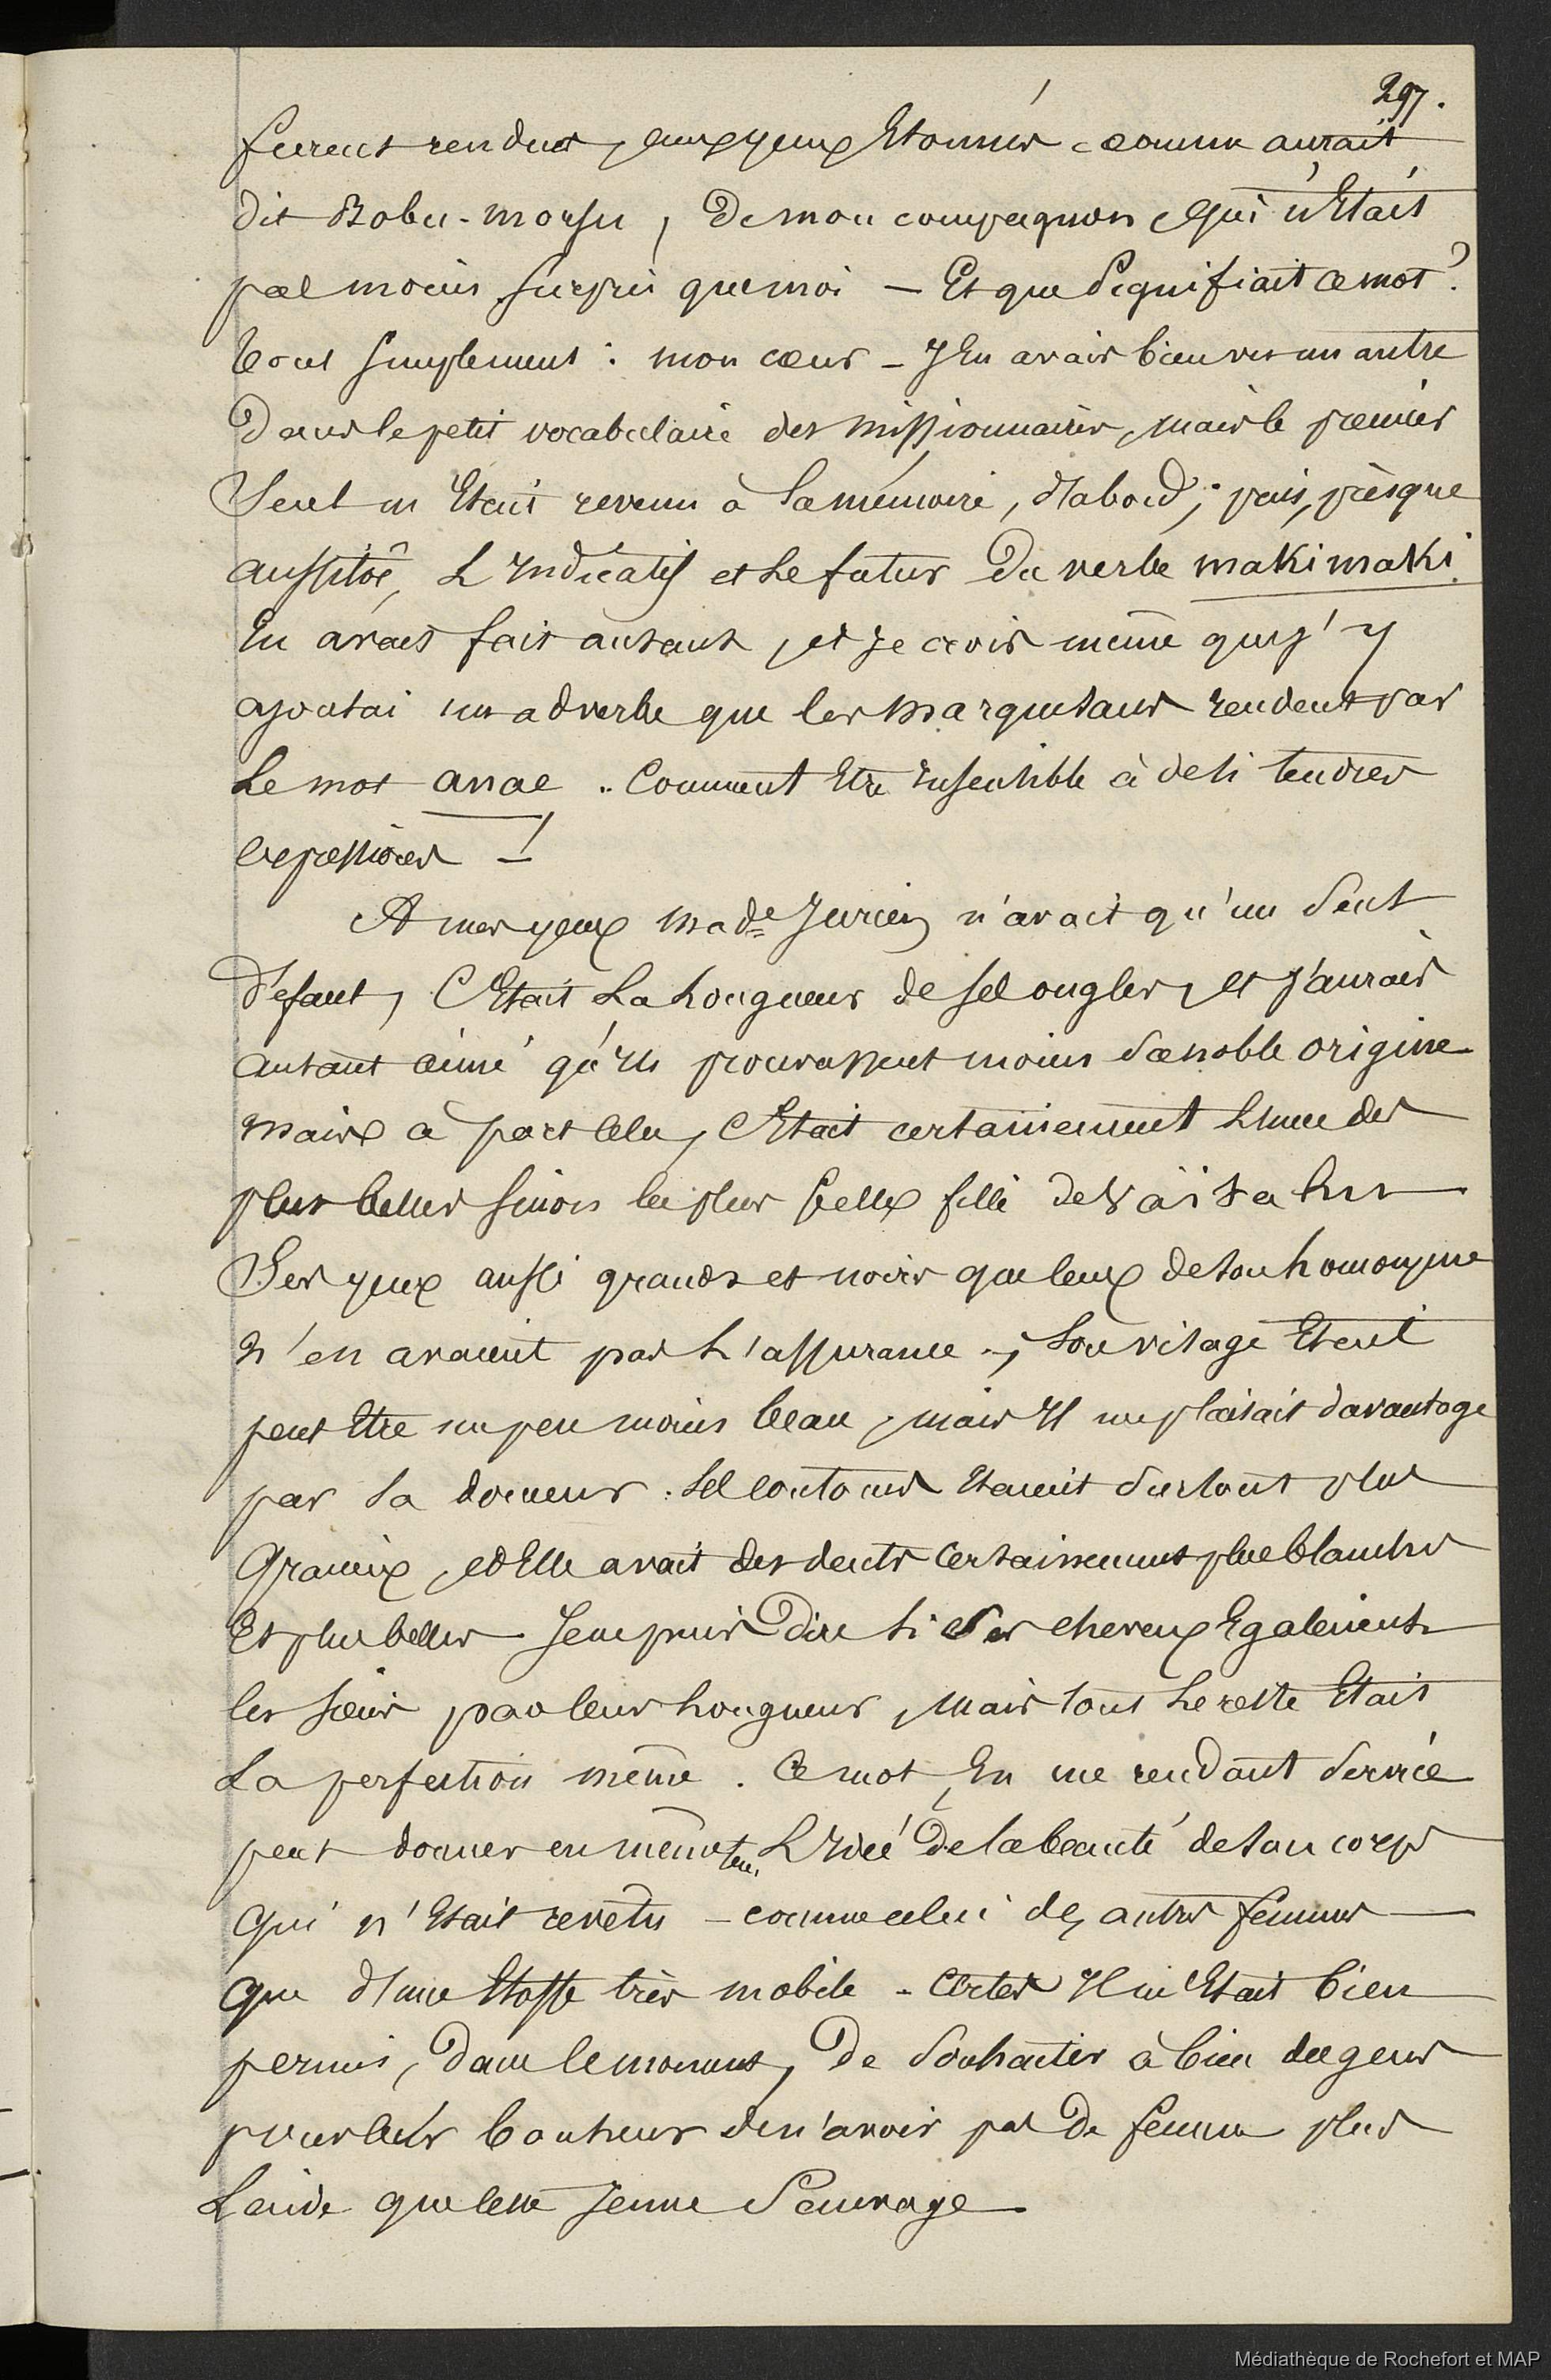 297.
furent rendues, aux yeux Etonnés comme aurait
dit Robu-morsu, De mon compagnon qui n'Etait
pas moins surpris que moi — Et que signifiait ce mot ?
tout simplement : mon cœur – J'En avais bien vu un autre
Dans le petit vocabulaire des Missionnaires, mais le premier
Seul m'Etait revenu à la mémoire, d'abord ; puis, presque
aussitôt, L'Indicatif et Le futur Du verbe makimaki
En avait fait autant, et Je crois même que j'y
ajoutai un adverbe que les Marquisans rendent par
Le mot anae. Comment Etre Insensible à de si tendres
expressions !
A mes yeux Made Jurien n'avait qu'un Seul
Défaut, C'Etait La Longueur de ses ongles, et J'aurais
autant aimé qu'Ils prouvassent moins Sa noble origine
Mais à part cela, C'Etait certainement L'une des
plus belles sinon la plus belle fille de Vaïtahu
Ses yeux aussi grands et noirs que ceux de son homonyme
N'en avaient pas L'assurance ; Son visage Etait
peut Etre un peu moins beau, mais Il me plaisait davantage
par sa douceur. Ses contours Etaient Surtout plus
Gracieux, et Elle avait des dents Certainement plus blanches
Et plus belles. Je ne puis Dire si Ses cheveux Egalaient
les siens par leur Longueur, Mais tout Le reste Etait
La perfection même. Ce mot, En me rendant Service
peut donner en même tems L'Idée De la beauté de son corps
Qui n'Etait revêtu – comme celui des autres femmes —
Que d'une Etoffe très mobile. Certes Il m'Etait bien
permis, Dans le moment, De Souhaiter à bien des gens
pour leur bonheur de n'avoir pas De femme plus
Laide que cette Jeune Sauvage.
Médiathèque de Rochefort et MAP